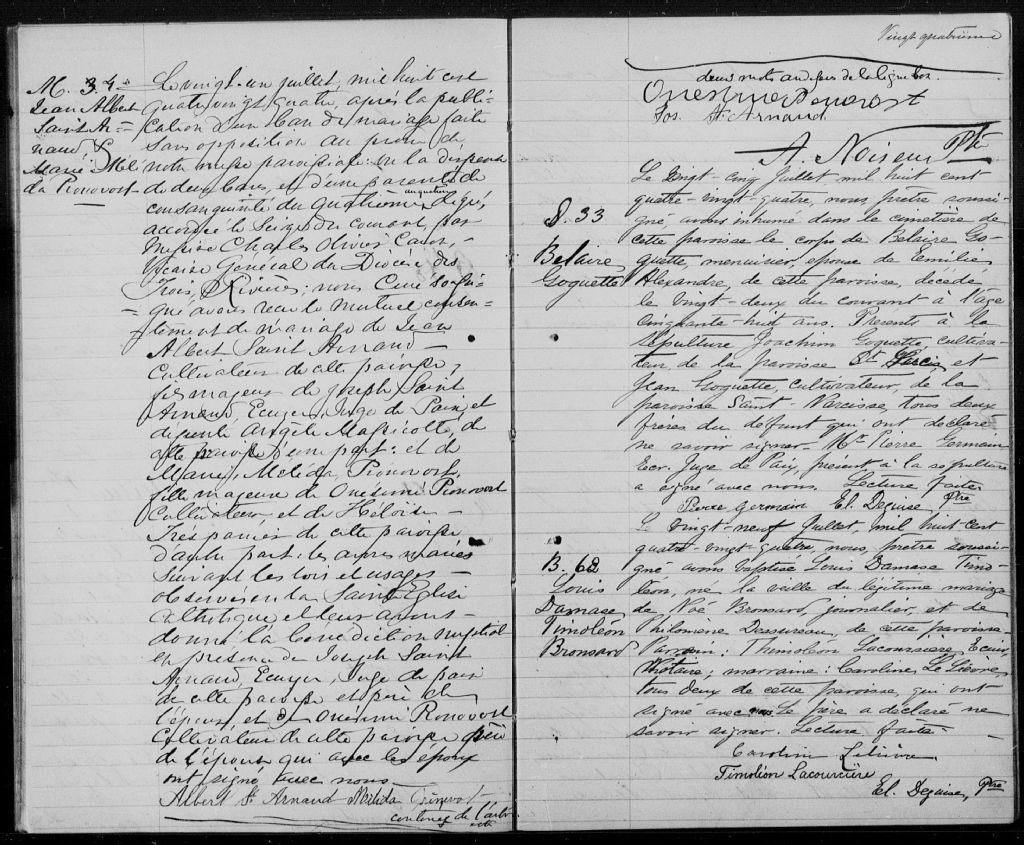 M. 34
Jean Albert
Saint Ar=
naud &
Marie Mél
da Pronovost
Le vingt-un juillet, mil huit cent
quatre vingt quatre, après la publi=
cation d'un ban de mariage faite
sans opposition au prone de
notre messe paroissiale: vu la dispense
de deux bans, et d'une parenté de
consanguinité du quatrième au quatrième dégré,
accordée le seize du courant, par
Messire Charles Olivier Caron,
Vicaire Général du Diocèse des
Trois, Rivières; nous Curé soussi=
gné avons reçu le mutuel consen=
tement de mariage de Jean
Albert Saint Arnaud
Cultivateur de cette paroisse,
fils majeur de Joseph Saint
Arnaud, Ecuyer, Juge de Paix et
de Angèle Massicotte, de
cette paroisse d'une part: et de
Marie, Melida, Pronovost,
fille majeure de Onésime Pronovost
Cultivateur, et de Héloise
Trépanier de cette paroisse
d'autre part: les ayons mariés
suivant les lois et usages
observés en la Sainte Eglise
Catholique et leur avons
donné la bénédiction nuptiale
en présence de Joseph Saint
Arnaud, Ecuyer, Juge de paix
de cette paroisse et père de
l'époux, et de Onésime Pronovost
Cultivateur de cette paroisse père
de l'épouse qui avec les époux
ont signé avec nous
Albert St Arnaud Mélida
de l'autre
Vingt quatrième
deux mots de la ligne bon.
Onésime Pronovost
Jos. St. Arnaud
A. Noiseux Ptre
S. 33
Belaire
Goguette
Le vingt-cinq Juillet, mil huit cent
quatre-vingt-quatre, nous, prêtre soussi-
gné, avons inhumé dans le cimetière de
cette paroisse le corps de Belaire Go-
guette, menuisier, epoux de Emilie
Alexandre, de cette paroisse, décédé
le vingt-deux du courant à l'âge
cinquante-huit ans. Présents à la
sépulture Joachim Goguette, cultiva-
teur, de la paroisse St. Narcisse, et
Jean Goguette, cultivateur, de la
paroisse Saint-Narcisse, tous deux
frères du défunt qui ont déclaré
ne savoir signer. Mr. Pierre Germain
Ecr. Juge de Paix, présent à la sépulture
a signé avec nous. Lecture faite.
Pierre Germain El. Deguise, Ptre
B. 62
Louis
Damase
Timoléon
Bronsard
Le vingt-neuf Juillet, mil huit cent
quatre-vingt-quatre, nous, prêtre soussi-
gné avons baptisé Louis Damase Timo-
léon, né la veille du légitime mariage
de Noé Bronsard, journalier, et de
Philomène Dessureau, de cette paroisse.
Parrain: Thimoléon Lacoursière, Ecuier
Notaire; marraine: Caroline Le Lièvre,
tous deux de cette paroisse, qui ont
signé avec nous. Le père a déclaré ne
savoir signer. Lecture faite.
Caroline Lelièvre
Timoléon Lacourcière
El. Deguise, Ptre